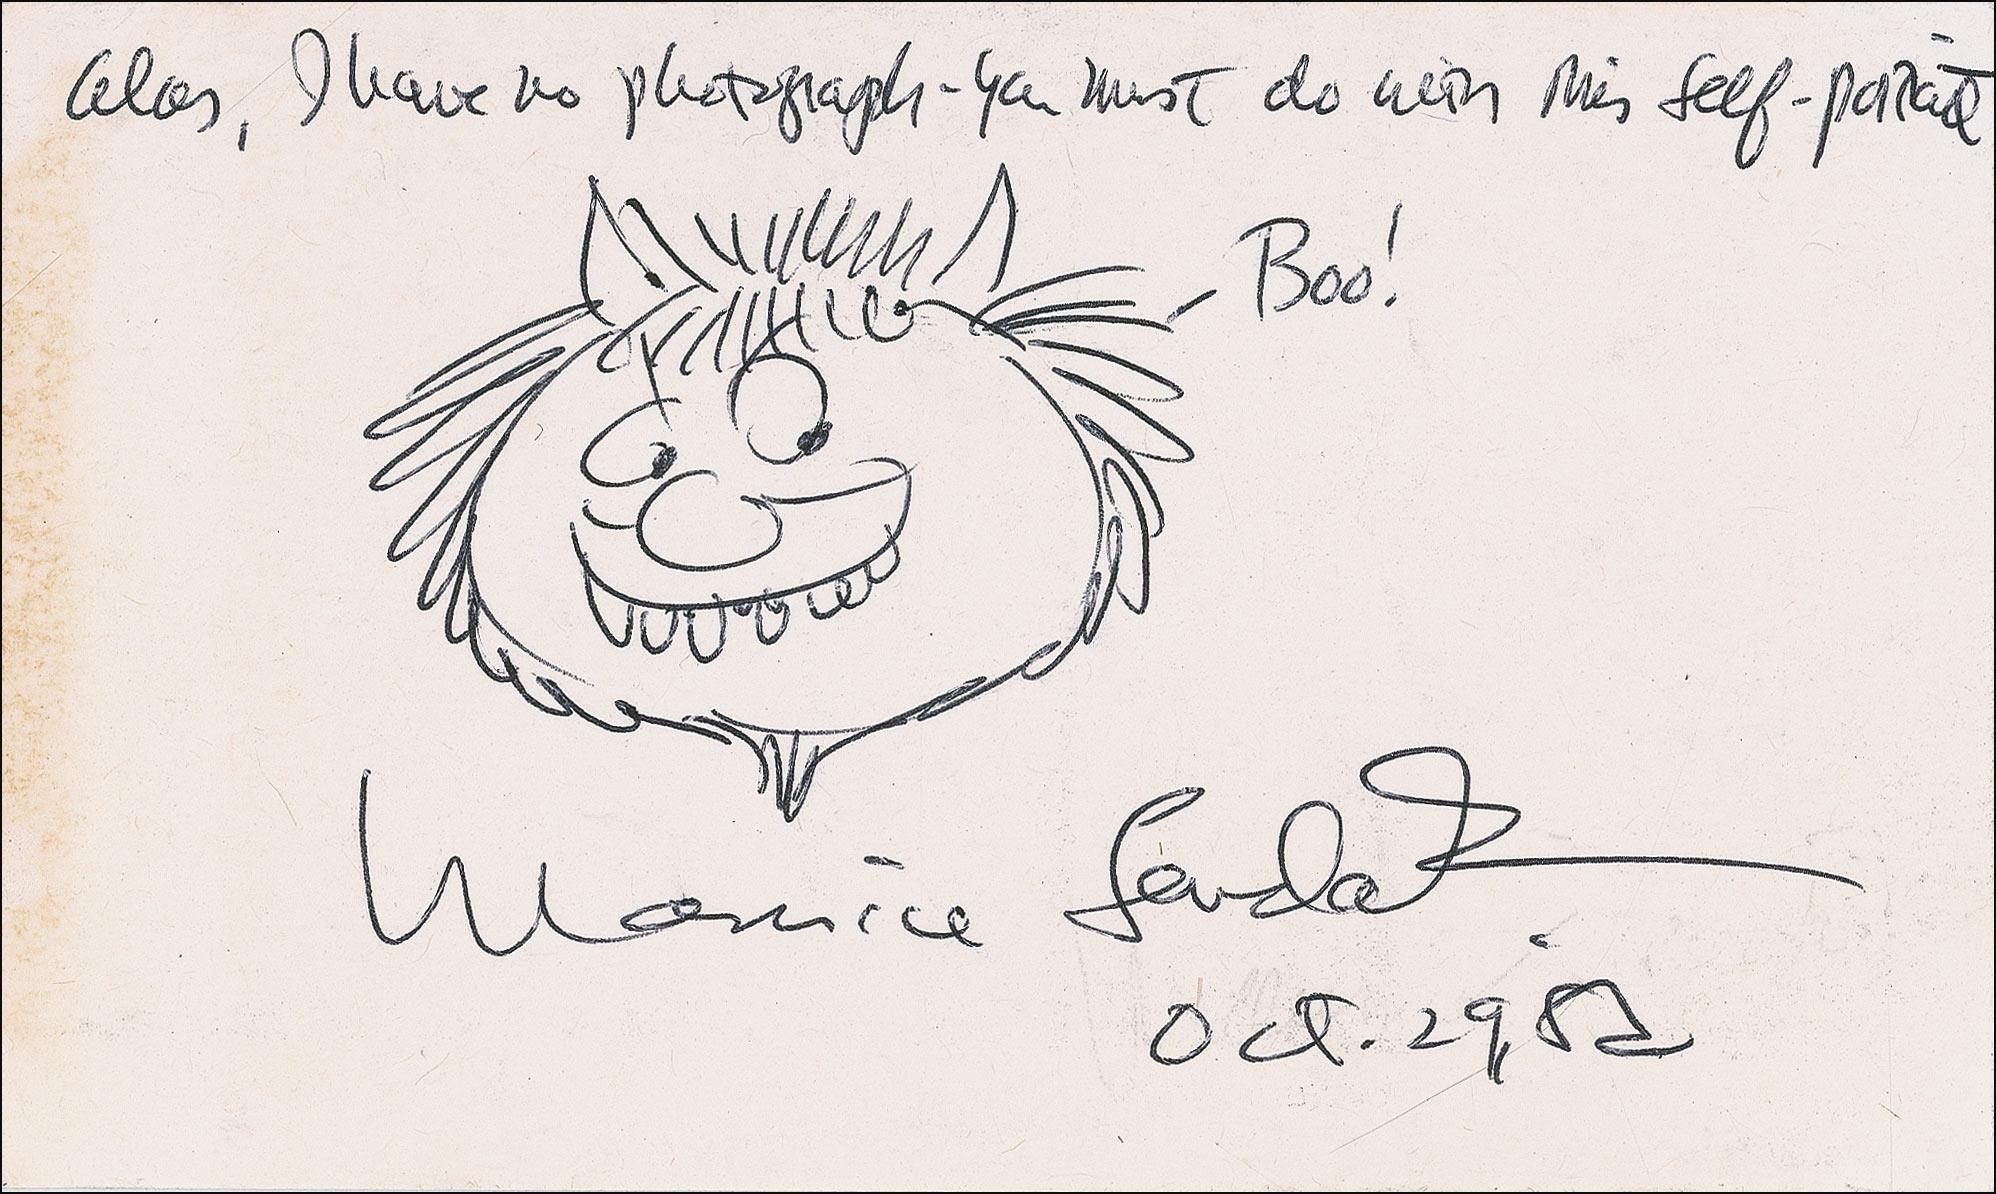 Alas, I have no photograph - you must do with this self-portrait
Boo!
Maurice Sendak
Oct. 29, 82